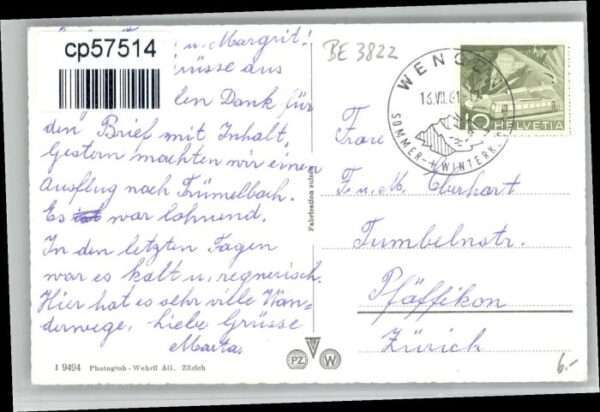 cp57514
u. Margrit!
aus
len Dank für
den Brief mit Inhalt,
Gestern machten wir einen
Ausflug nach Trümelbach.
Es war lohnend.
In den letzten Tagen
war es kalt u. regnerisch.
Hier hat es sehr ville Wan-
derwege, liebe Grüsse
Marta
1 9494 Photogrob - Wehrli AG. Zürich
BE 3822
WENGEN
SOMMER- + WINTERK
10
HELVETIA
Frau
F. u. M. Eberhart
Tumbelnstr.
Pfäffikon
Zürich
PZ W
6.-